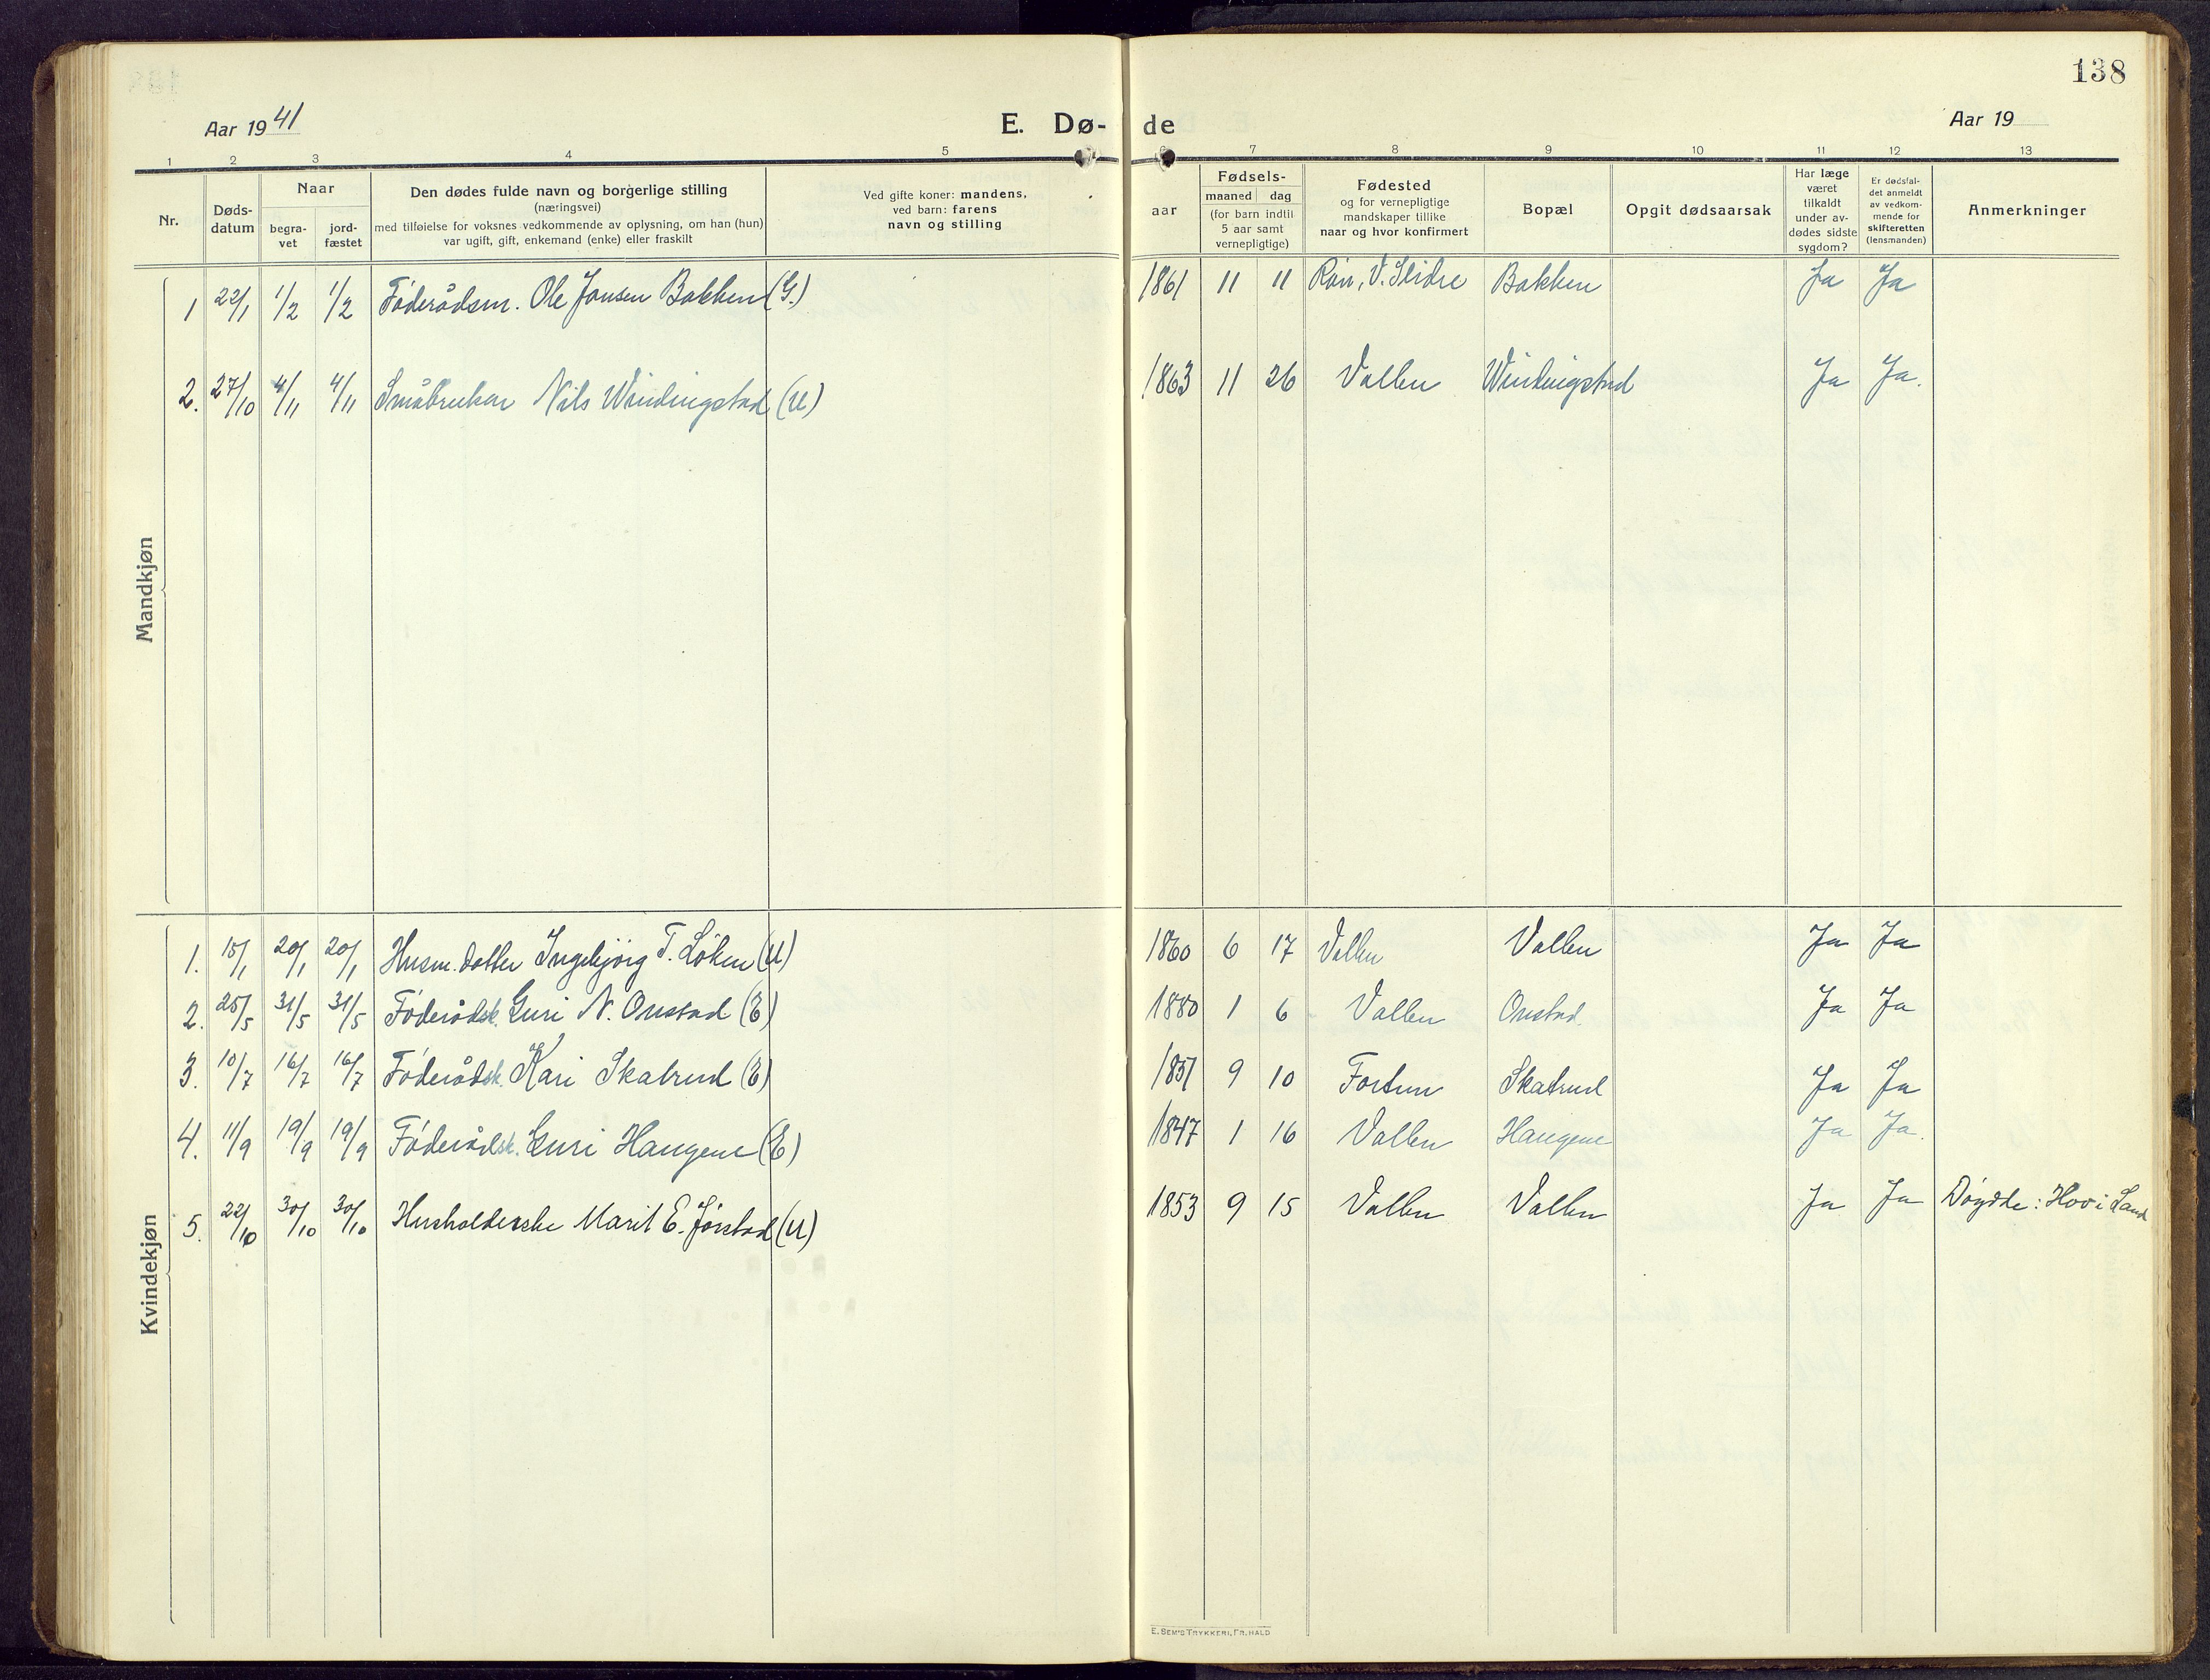 138
Aar 1941 E. Dø- de Aar 19
1 2 3 4 5 7 8 9 10 11 12 13
Nr.
Døds-
datum
Naar
begra-
vet
jord-
fæstet
Den dødes fulde navn og borgerlige stilling
(næringsvei)
med tilføielse for voksnes vedkommende av oplysning, om han (hun)
var ugift, gift, enkemand (enke) eller fraskilt
Ved gifte koner: mandens,
ved barn: farens
navn og stilling
aar
Fødsels-
maaned dag
(for barn indtil
5 aar samt
vernepligtige)
Fødested
og for vernepligtige
mandskaper tillike
naar og hvor konfirmert
Bopæl
Opgit dødsaarsak
Har læge
været
tilkaldt
under av-
dødes sidste
sygdom?
Er dødsfal-
det anmeldt
av vedkom-
mende for
skifteretten
(lensmanden)
Anmerkninger
Mandkjøn
1 22/1 1/2 1/2 Føderådsm. Ole Jansen Bakken (G.) 1861 11 11 V. Slidre Bakken Ja Ja
2. 27/10 4/11 4/11 Småbruker Nils Windingstad (U) 1863 11 26 Vallen Windingstad Ja Ja.
Kvindekjøn
1. 15/1 20/1 20/1 Husm. datter Ingebjørg T. Løken (U) 1860 6 17 Vallen Vallen Ja Ja
2. 25/5 31/5 31/5 Føderådsk. Guri N. Onstad (E) 1880 1 6 Vallen Onstad. Ja Ja
3. 10/7 16/7 16/7 Føderådsk. Kari Skatrud (E) 1851 9 10 Fortun Skatrud Ja Ja
4. 11/9 19/9 19/9 Føderådsk. Guri Haugene (E) 1847 1 16 Vallen Haugene Ja Ja.
5. 22/10 30/10 30/10 Husholderske Marit E. Jørstad (U) 1853 9 15 Vallen Vallen Ja Ja Døydde: Hov i Land
E. SEM'S TRYKKERI, FR. HALD